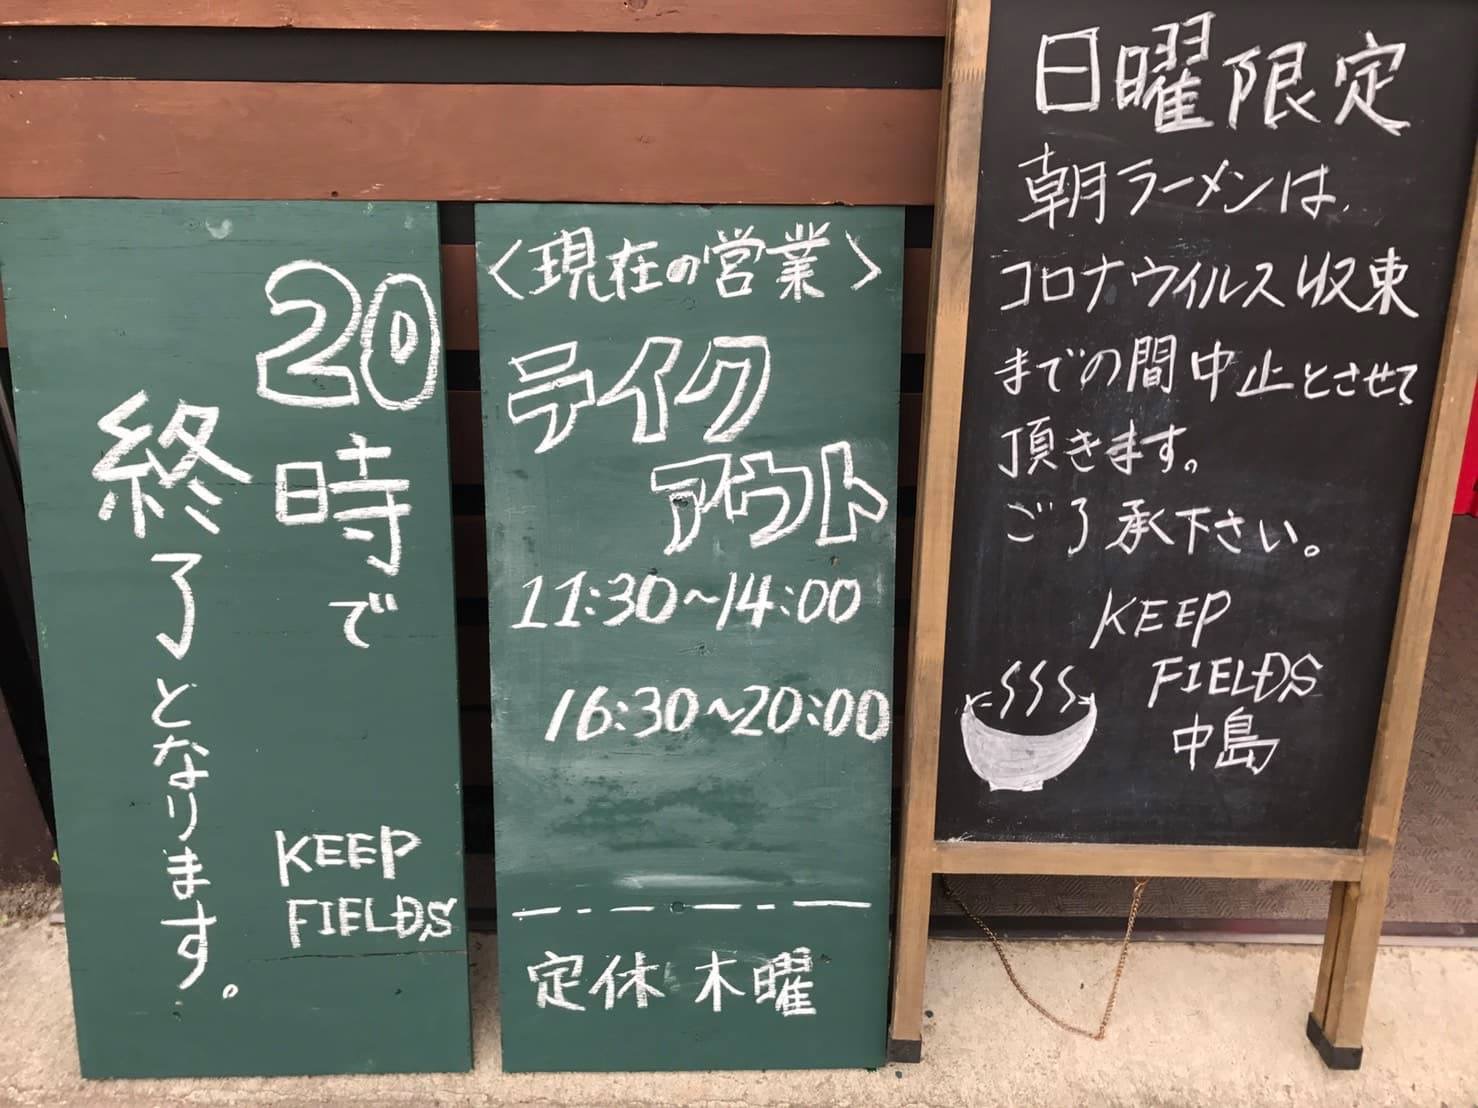 20時で
終了となります。
KEEP
FIELDS
〈現在の営業〉
テイク
アウト
11:30～14:00
16:30～20:00
定休 木曜
日曜限定
朝ラーメンは、
コロナウイルス収束
までの間中止とさせて
頂きます。
ご了承下さい。
KEEP
FIELDS
中島